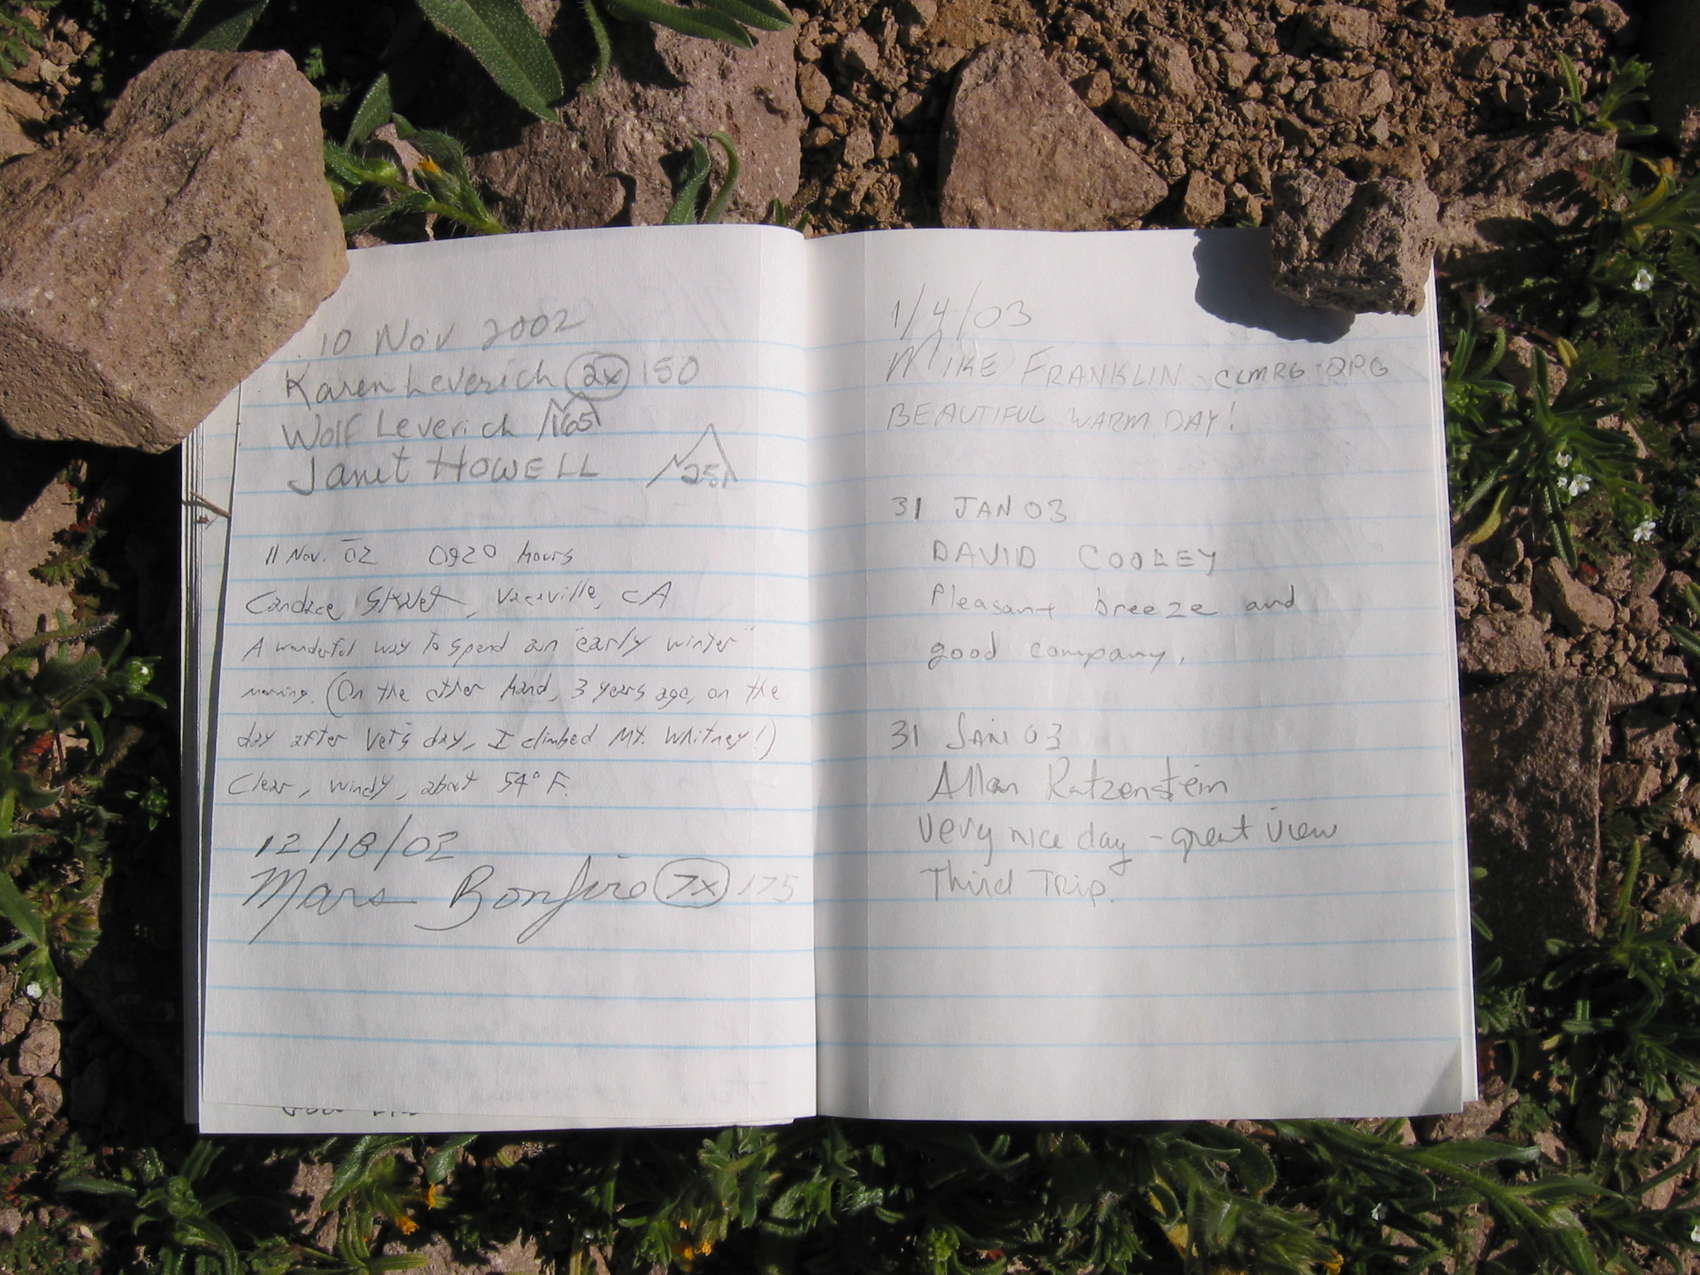 10 Nov 2002
Karen Leverich 2x 150
Wolf Leverich 165
Janet HOWELL 25
11 Nov. 02 0920 hours
Candace, Vacaville, CA
A wonderful way to spend an "early winter"
morning. (On the other hand, 3 years ago, on the
day after Vet's day, I climbed Mt. Whitney!)
Clear, windy, about 54° F.
12/18/02
Mars Bonfire 7x 175
1/4/03
MIKE FRANKLIN CLMRG
BEAUTIFUL WARM DAY!
31 JAN 03
DAVID COOLEY
Pleasant breeze and
good company.
31 JAN 03
Allan Ratzenstein
Very nice day - great view
Third Trip.